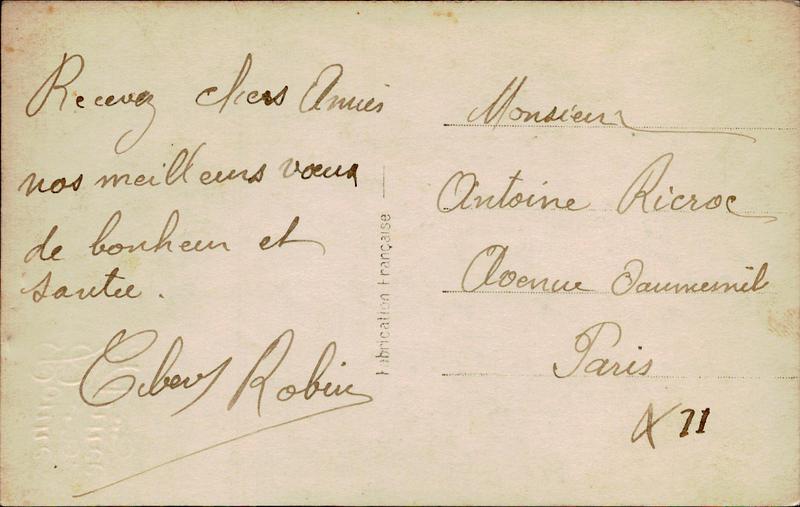 Recevez chers Amies
nos meilleurs vœux
de bonheur et
santée.
Robin
Fabrication Française
Monsieur
Antoine Ricroc
Avenue Daumesnil
Paris
X 11